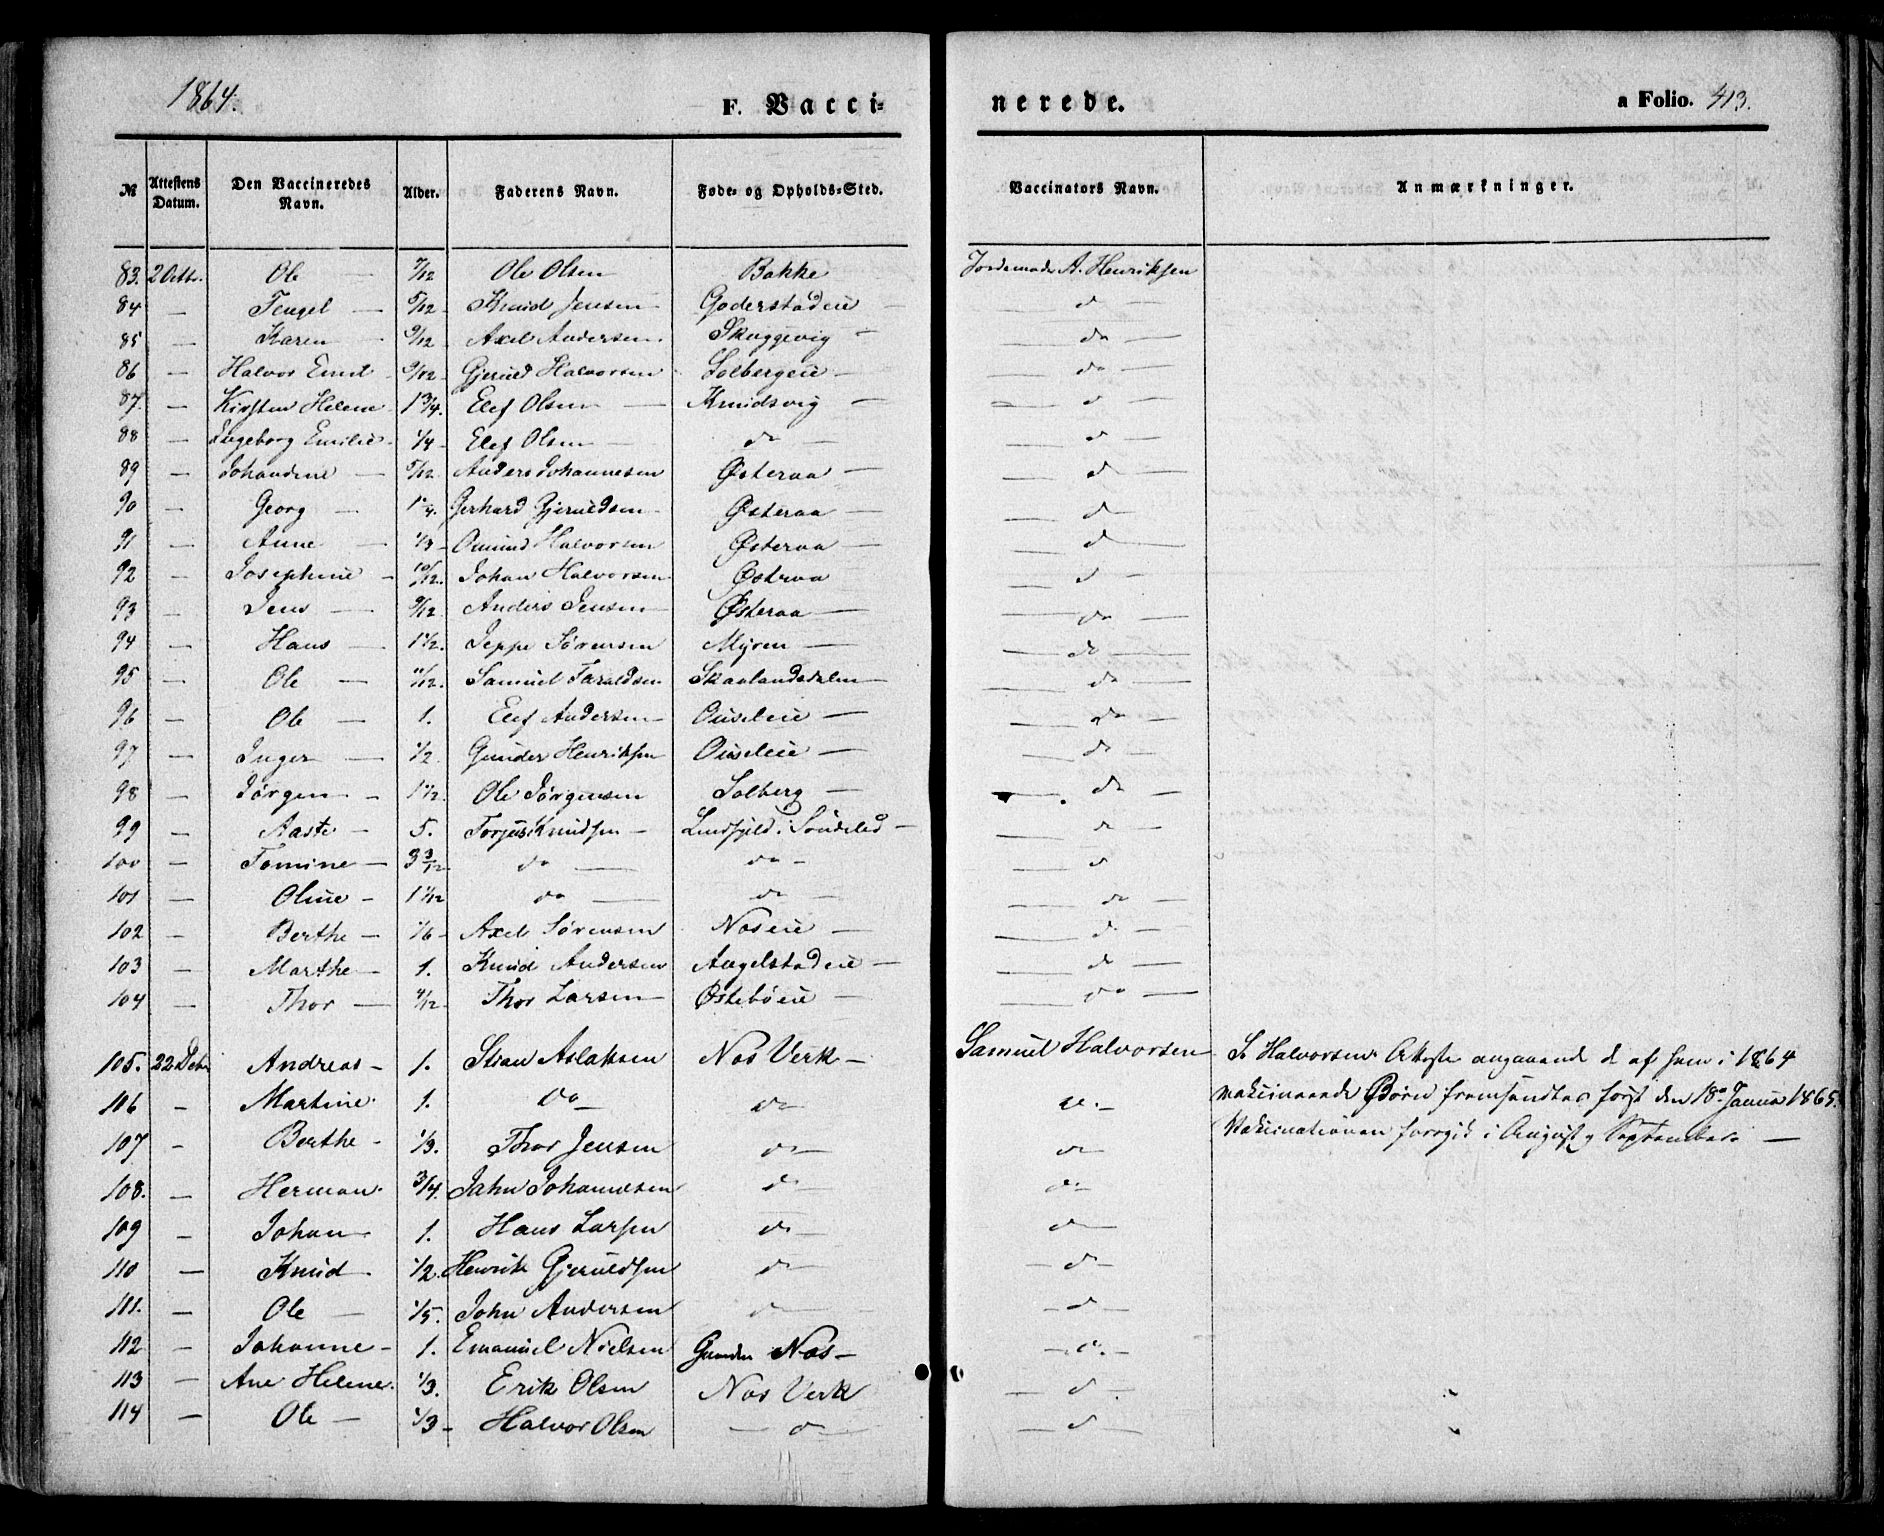 1864.
F. Vacci-
nerede.
a Folio. 413.
№ Attestens Datum. Den Vaccineredes Navn. Alder. Faderens Navn. Føde- og Opholds-Sted. Vaccinators Navn. Anmærkninger.
83. 2 Octb. Ole — 7/12 Ole Olsen Bakke Jordemoder A. Henriksen
84 — Tengel — 5/12 Knud Jensen — Goderstadeie — — d —
85 — Karen — 9/12 Axel Andersen. Skuggevig — — do —
86 — Halvor Emil 9/12 Gjeruld Halvorsen Solbergeie — — do —
87. — Kirsten Helene 1 3/4. Elef Olsen — Knudsvig — — d —
88 — Ingeborg Emilie 1/4 — Elef Olsen — do — — d —
89 — Johandine — 5/12 Anders Johannesen Østeraa — — d
90 — Georg — Gerhard Gjeruldsen Østeraa — — d —
91 — Anne — 1/3 — Omund Halvorsen Østeraa — — d —
92 — Josephine — 10/12. Johan Halvorsen Østraa — d —
93 — Jens — 9/12 Anders Jensen — Østeraa — — do —
94 — Hans — 1 1/2. Jeppe Sørensen Myren — — do —
95 — Ole — 11/12. Samuel Taraldsen Skaalandsdalen — — do —
96 — Ole — 1. Elef Andersen — Ouseleie — — do —
97 — Inger — 1/2 Gunder Henriksen Ouseleie — — do —
98 — Jørgen — 1 1/2. Ole Jørgensen Solberg — — do —
99 — Aaste — 5. Torjus Knudsen — Lindfjeld i Søndeled — — d —
100 — Tomine — 3 3/12 do — do — — d
101 — Oline — 1 1/12 do — do — — do —
102 — Berthe — 1/6 — Axel Sørensen Noseie — — d. —
103 — Marthe — 1. Knud Andersen Angelstadeie — — do —
104 — Thor — 4/12 — Thor Larsen — Østebøeie — — do —
105. 22 Debr Andreas — 1. Aslaksen Nos Verk — Samuel Halvorsen S. Halvorsens Attest angaaende de af ham i 1864
106 — Martine. 1. do — do do. — vakcinerede Børn fremsendtes først den 18de Januar 1865.
107 — Berthe — 1/3. Thor Jensen do — do — Vakcinationen foregik i August og September. —
108. — Herman. 3/4. Jahn Johannesen do — do —
109 — Johan — 1. Hans Larsen do — do —
110 — Knud — 1/2. Henrik Gjeruldsen do — — do —
111. — Ole — 1/5. John Andersen do — — d —
112 — Johanne — 1. Emanuel Nielsen Gunder Nos — — do. —
113 — Ane Helene. 1/3. Erik Olsen Nos Verk — d —
114 — Ole — 1/3 — Halvor Olsen — do — — d —